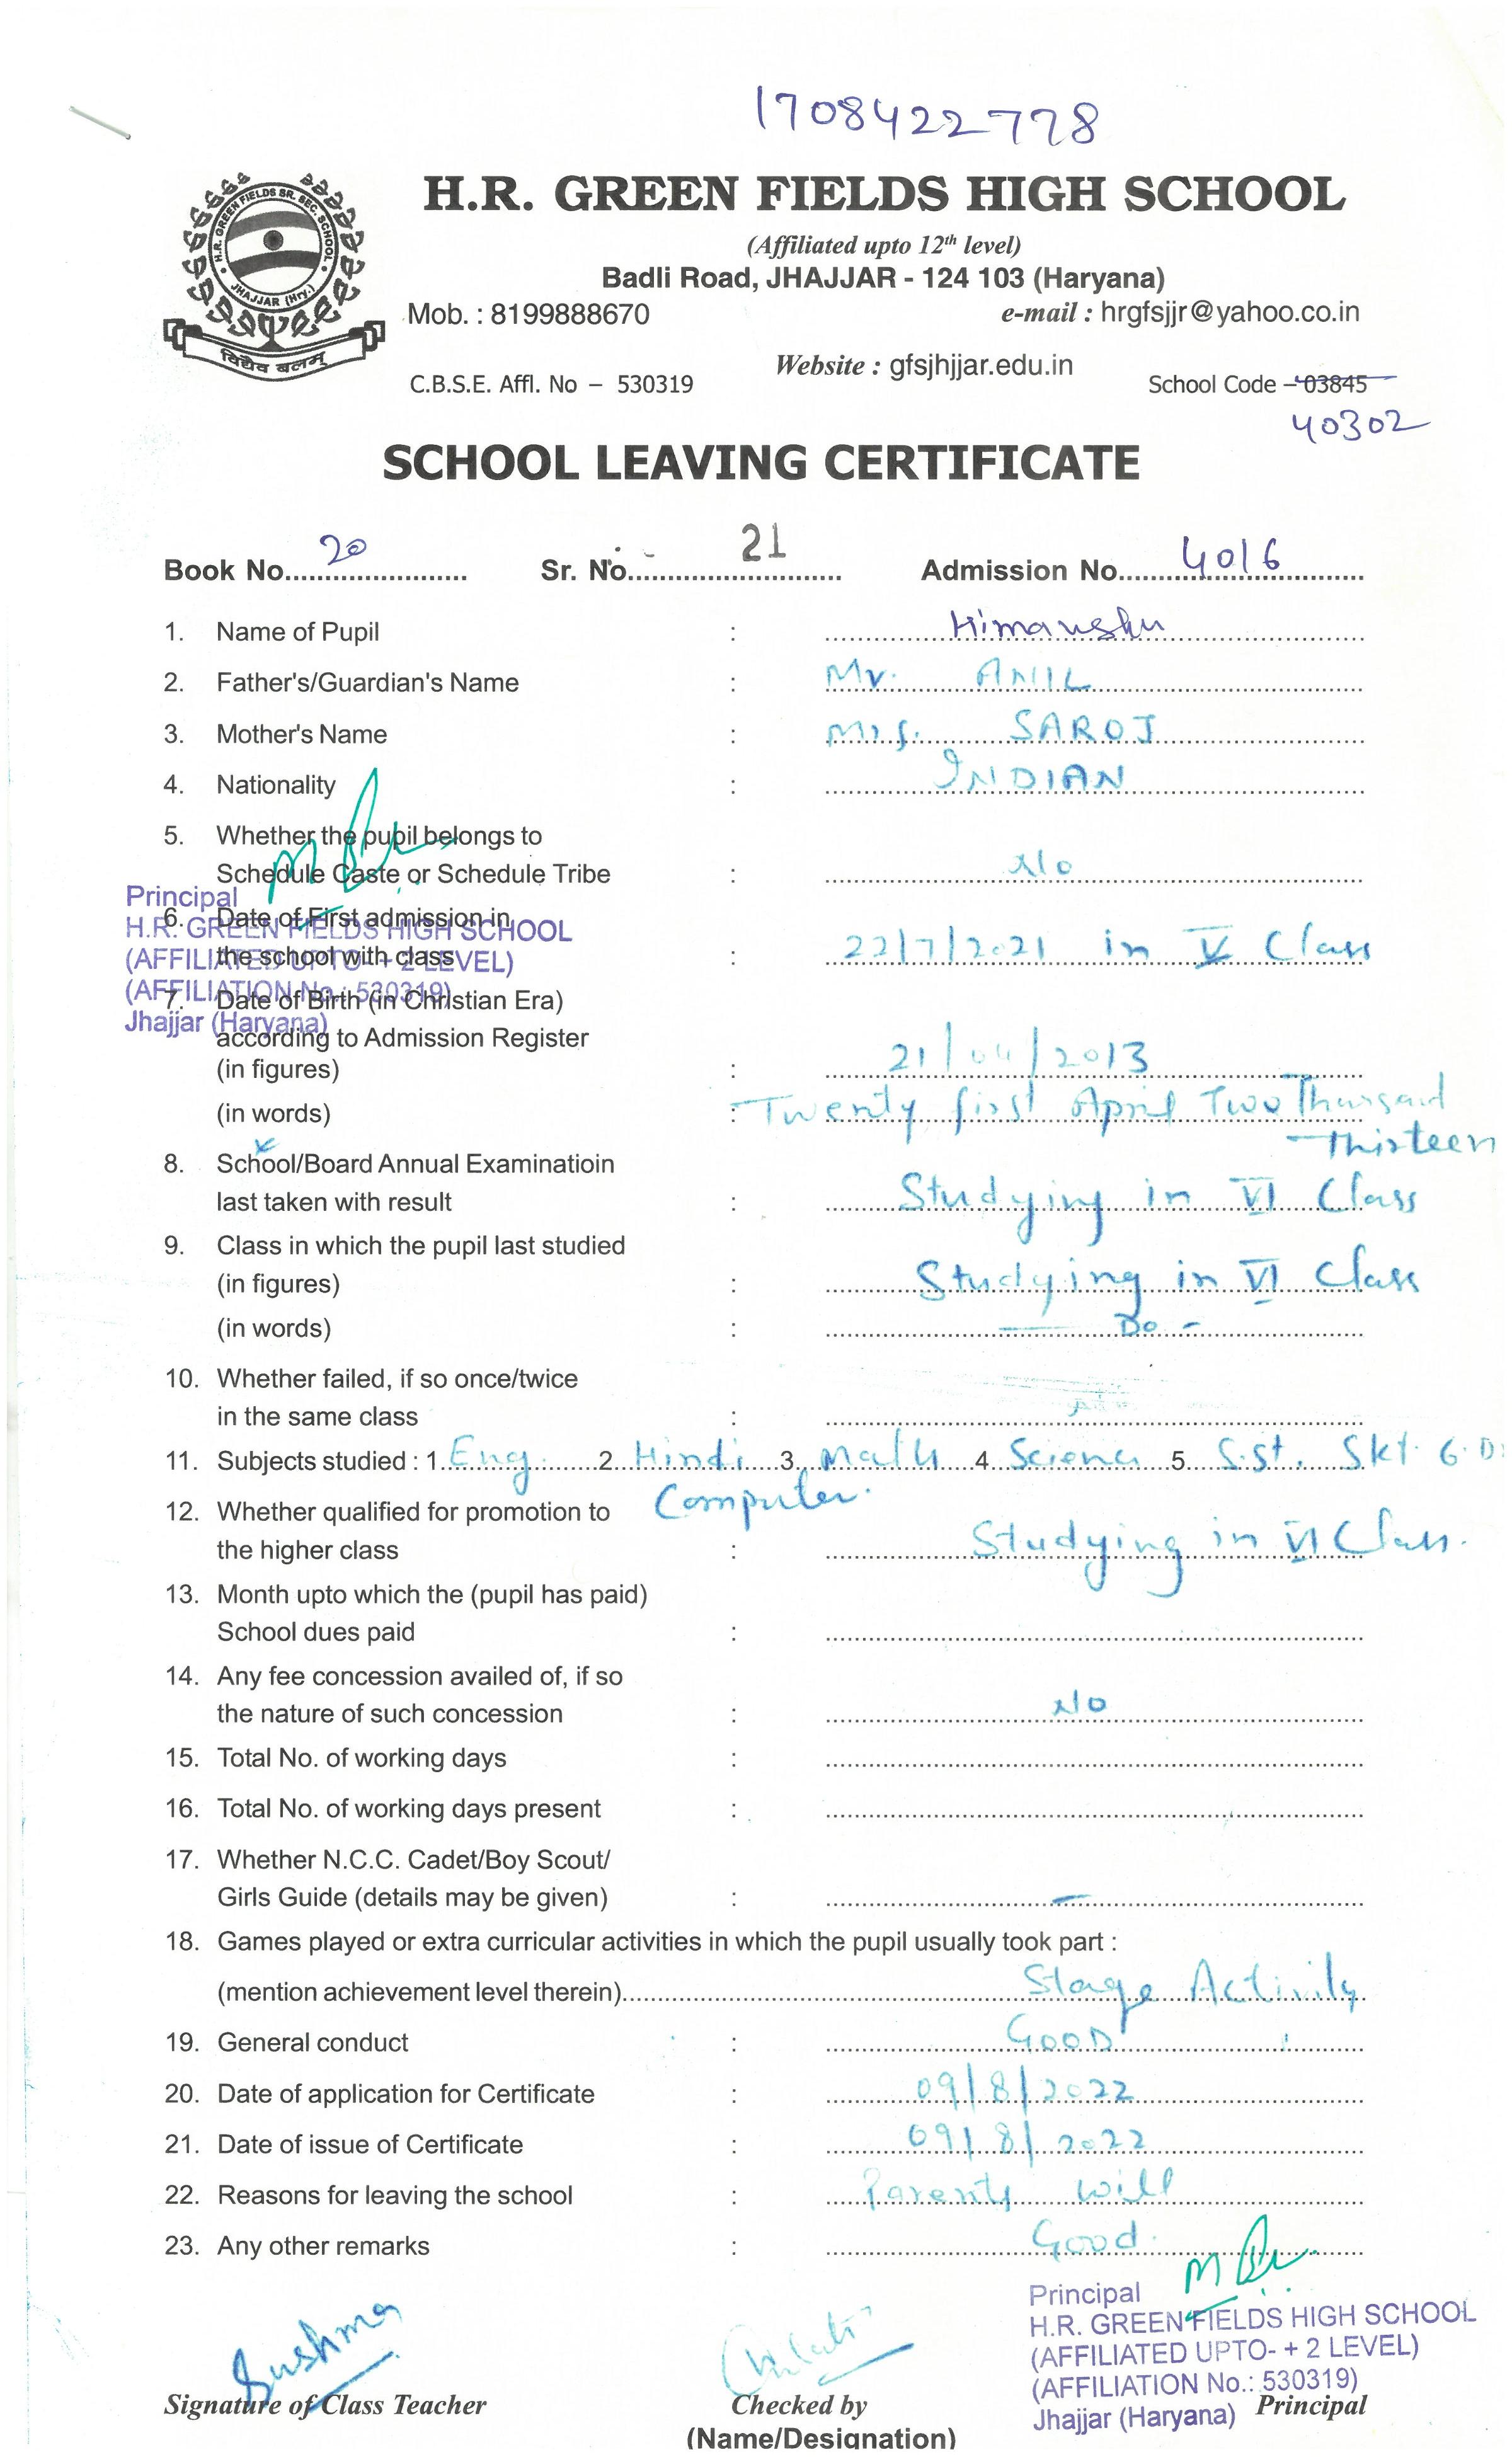 1708422778
H.R. GREEN FIELDS HIGH SCHOOL
(Affiliated upto 12th level)
Badli Road, JHAJJAR - 124 103 (Haryana)
Mob. : 8199888670 e-mail : hrgfsjjr@yahoo.co.in
Website : gfsjhjjar.edu.in
C.B.S.E. Affl. No – 530319 School Code – 03845
40302
H.R. GREEN FIELDS SR. SEC. SCHOOL
JHAJJAR (Hry.)
विद्यैव बलम्
SCHOOL LEAVING CERTIFICATE
Book No. 20 Sr. No. 21 Admission No. 4016
1. Name of Pupil : Himanshu
2. Father's/Guardian's Name : Mr. ANIL
3. Mother's Name : Mrs. SAROJ
4. Nationality : INDIAN
5. Whether the pupil belongs to
Schedule Caste or Schedule Tribe : No
Principal
H.R. GREEN FIELDS HIGH SCHOOL
(AFFILIATED UPTO- + 2 LEVEL)
(AFFILIATION No.: 530319)
Jhajjar (Haryana)
6. Date of First admission in
the school with class : 22/7/2021 in V Class
7. Date of Birth (in Christian Era)
according to Admission Register
(in figures) : 21/04/2013
(in words) : Twenty first April Two Thursand
Thirteen
8. School/Board Annual Examinatioin
last taken with result : Studying in VI Class
9. Class in which the pupil last studied
(in figures) : Studying in VI Class
(in words) : — Do -
10. Whether failed, if so once/twice
in the same class :
11. Subjects studied : 1. Eng. 2. Hindi 3. Math 4. Science 5. S.st. Skt G.D.
Computer.
12. Whether qualified for promotion to
the higher class : Studying in VI Class.
13. Month upto which the (pupil has paid)
School dues paid :
14. Any fee concession availed of, if so
the nature of such concession : No
15. Total No. of working days :
16. Total No. of working days present :
17. Whether N.C.C. Cadet/Boy Scout/
Girls Guide (details may be given) : —
18. Games played or extra curricular activities in which the pupil usually took part :
(mention achievement level therein) Stage Activity
19. General conduct : GOOD
20. Date of application for Certificate : 09/8/2022
21. Date of issue of Certificate : 09/8/2022
22. Reasons for leaving the school : Parents will
23. Any other remarks : Good.
Principal
H.R. GREEN FIELDS HIGH SCHOOL
(AFFILIATED UPTO- + 2 LEVEL)
(AFFILIATION No.: 530319)
Jhajjar (Haryana)
Sushma
Signature of Class Teacher Checked by Principal
(Name/Designation)